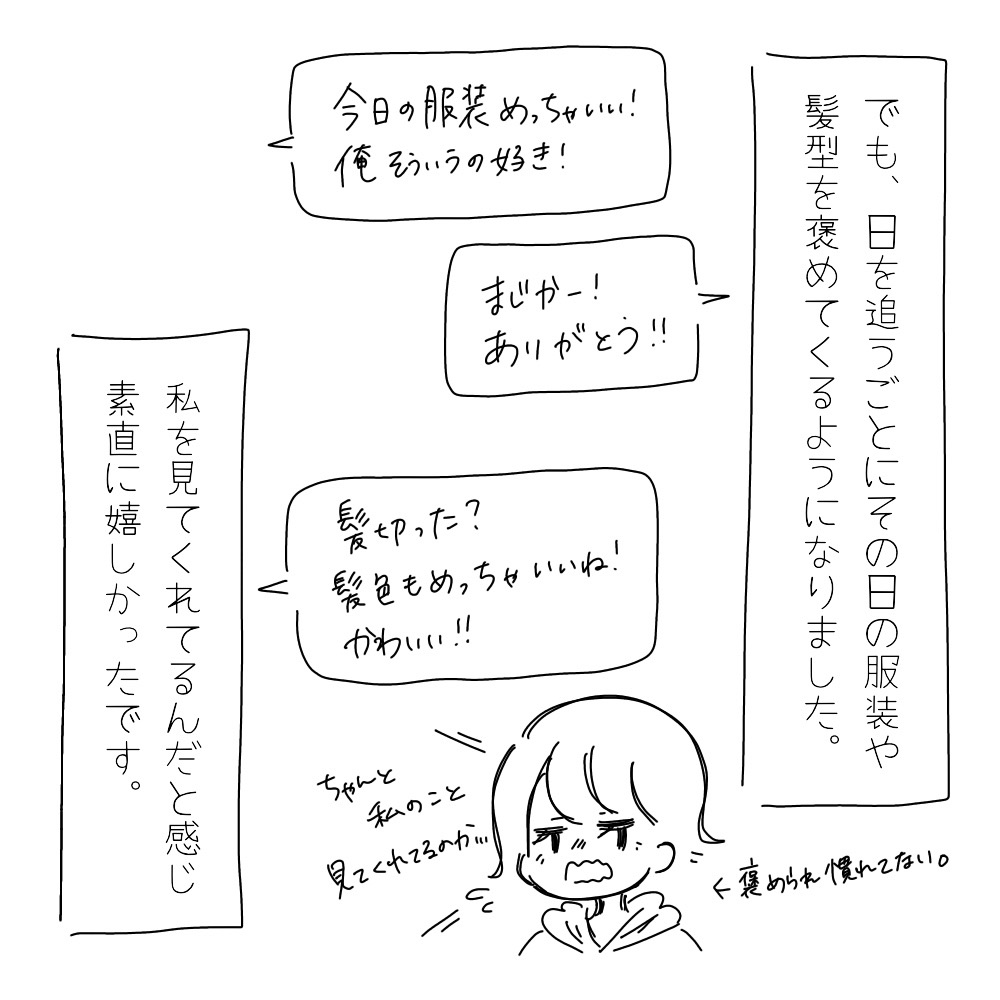 でも、日を追うごとにその日の服装や
髪型を褒めてくるようになりました。
今日の服装めっちゃいい!
俺そういうの好き!
まじかー!
ありがとう!!
髪切った?
髪色もめっちゃいいね!
かわいい!!
私を見てくれてるんだと感じ
素直に嬉しかったです。
ちゃんと
私のこと
見てくれてるのか…
←褒められ慣れてない。